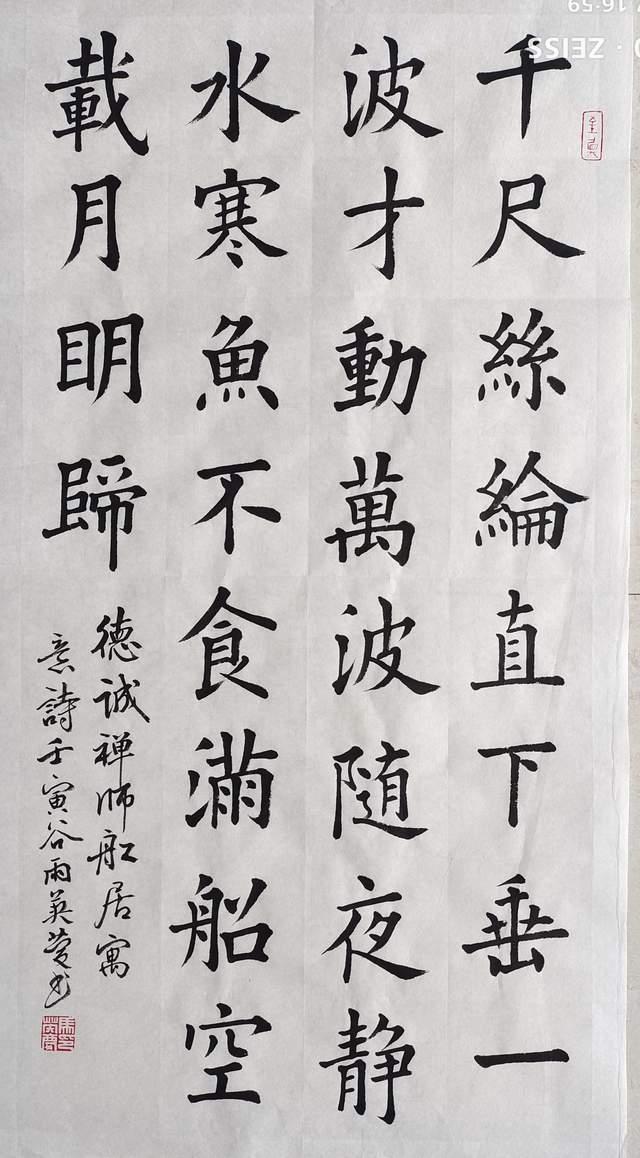 千尺絲綸直下垂一
波才動萬波随夜静
水寒魚不食滿船空
載月明歸
德誠禅師船居寓
意詩壬寅谷雨英莹书
ZEISS
16:59